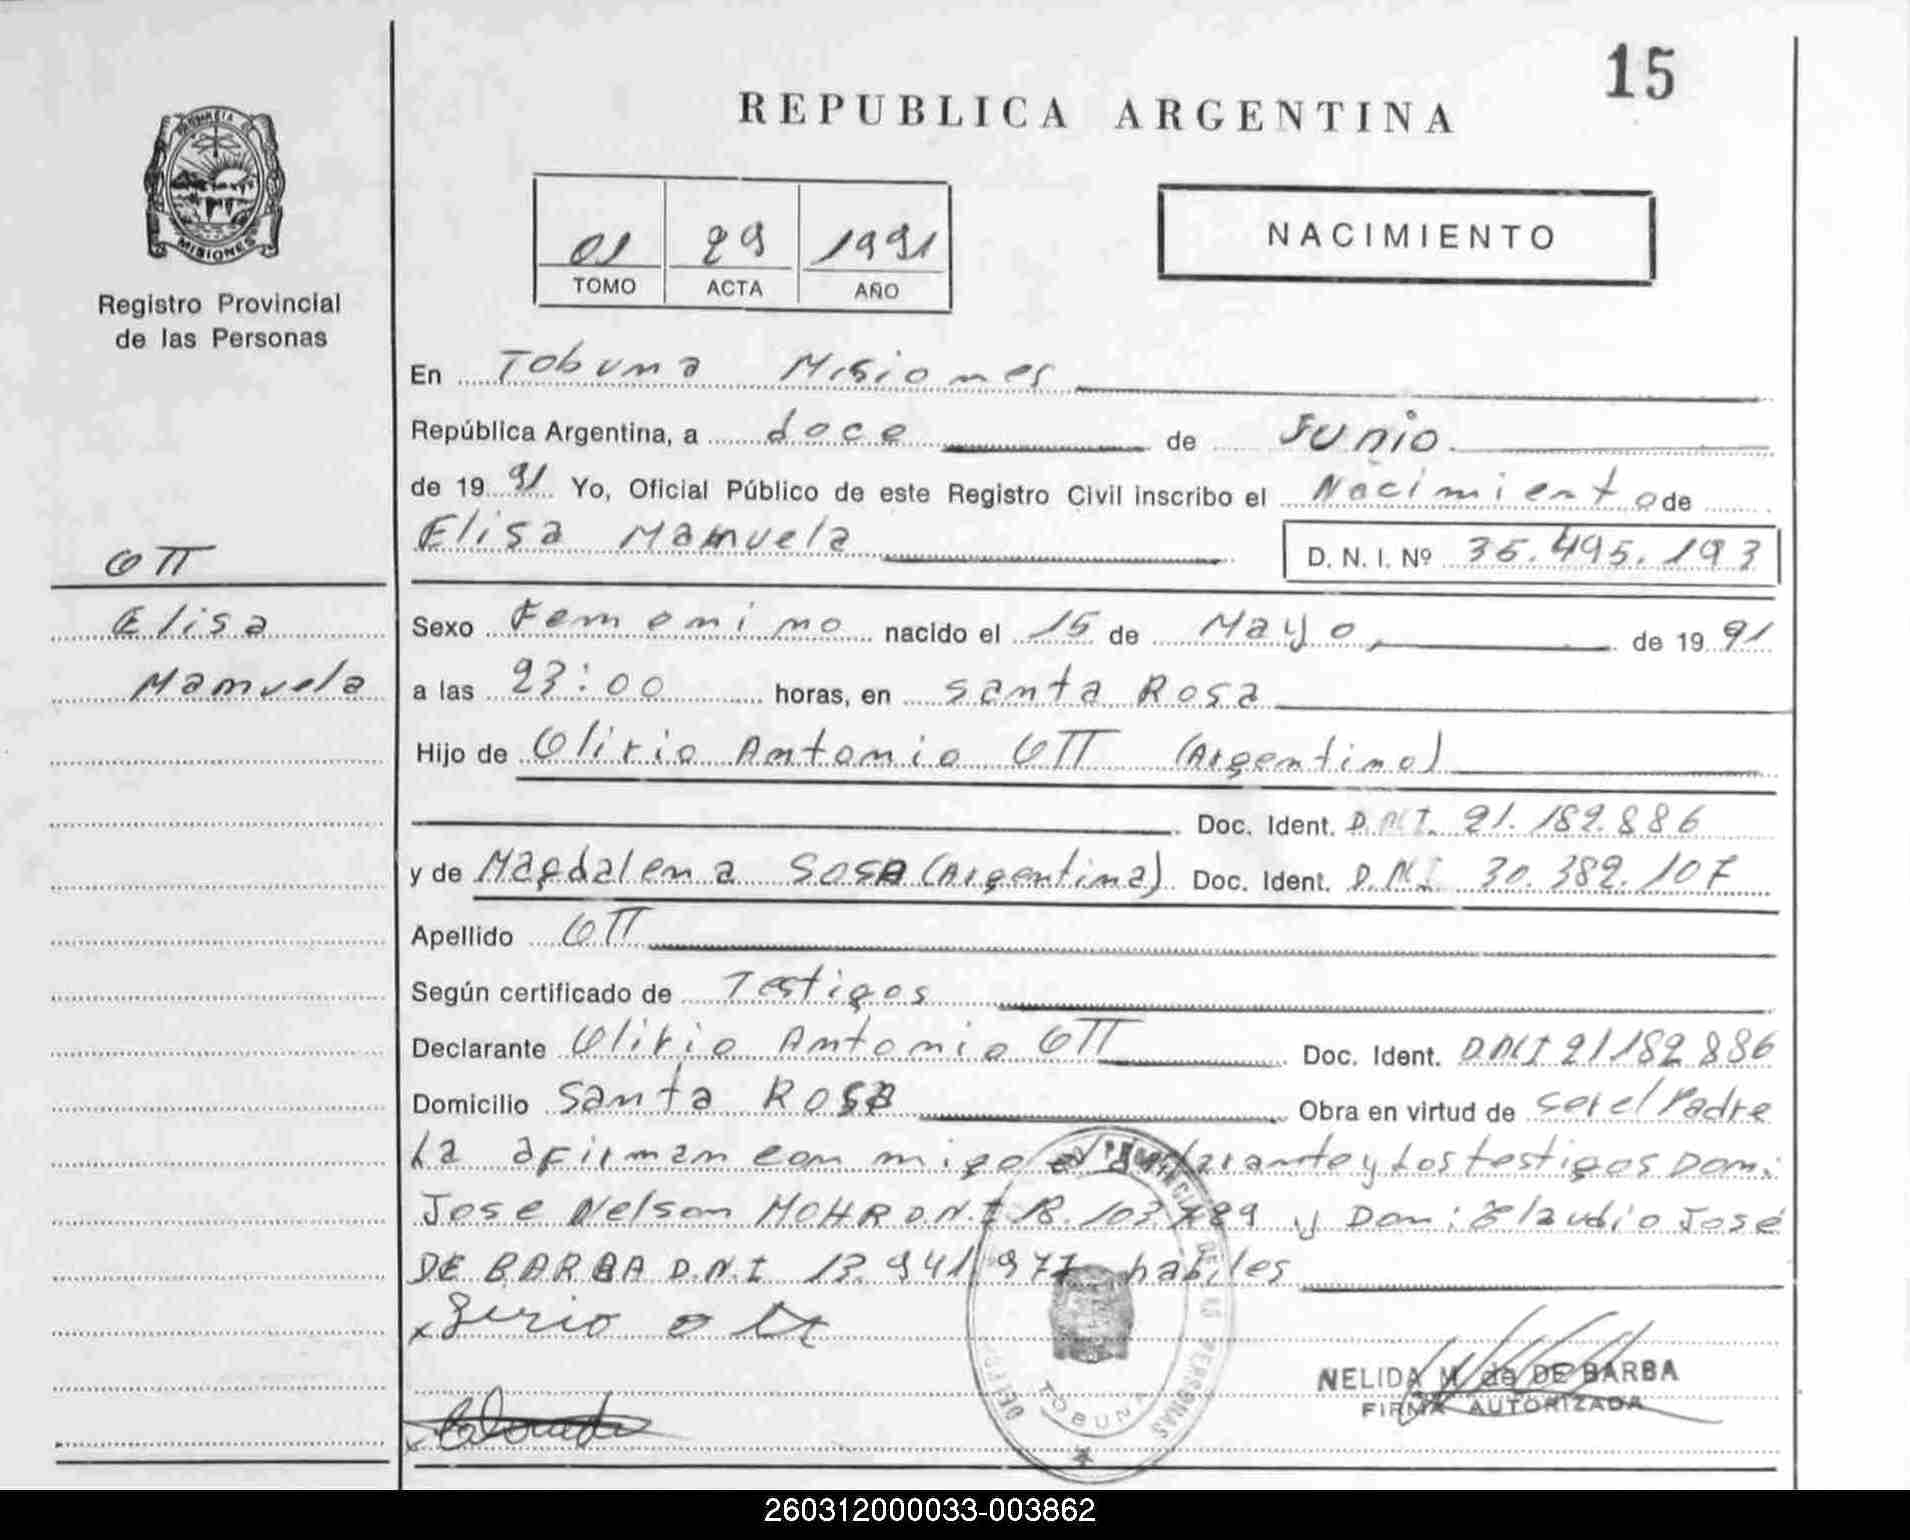 15
REPUBLICA ARGENTINA
PROVINCIA DE
MISIONES
Registro Provincial
de las Personas
01 29 1991
TOMO ACTA AÑO
NACIMIENTO
En Tobuna Misiones
República Argentina, a doce de Junio
de 1991 Yo, Oficial Público de este Registro Civil inscribo el Nacimiento de
Elisa Manuela D. N. I. Nº 36.495.193
OTT
Elisa
Manuela
Sexo Femenino nacido el 15 de Mayo de 1991
a las 23:00 horas, en Santa Rosa
Hijo de Olirio Antonio OTT (Argentino)
Doc. Ident. D.N.I. 21.182.886
y de Magdalena Sosa (Argentina) Doc. Ident. D.N.I 30.382.107
Apellido OTT
Según certificado de Testigos
Declarante Olirio Antonio OTT Doc. Ident. D.N.I 21182886
Domicilio Santa Rosa Obra en virtud de ser el Padre
La afirman con migo el declarante y los testigos Don:
Jose Nelson MOHR D.N.I 18.103.789 y Don: Claudio José
DE BARBA D.N.I 13.941.977 habiles
NELIDA M. de DE BARBA
FIRMA AUTORIZADA
TOBUNA
260312000033-003862